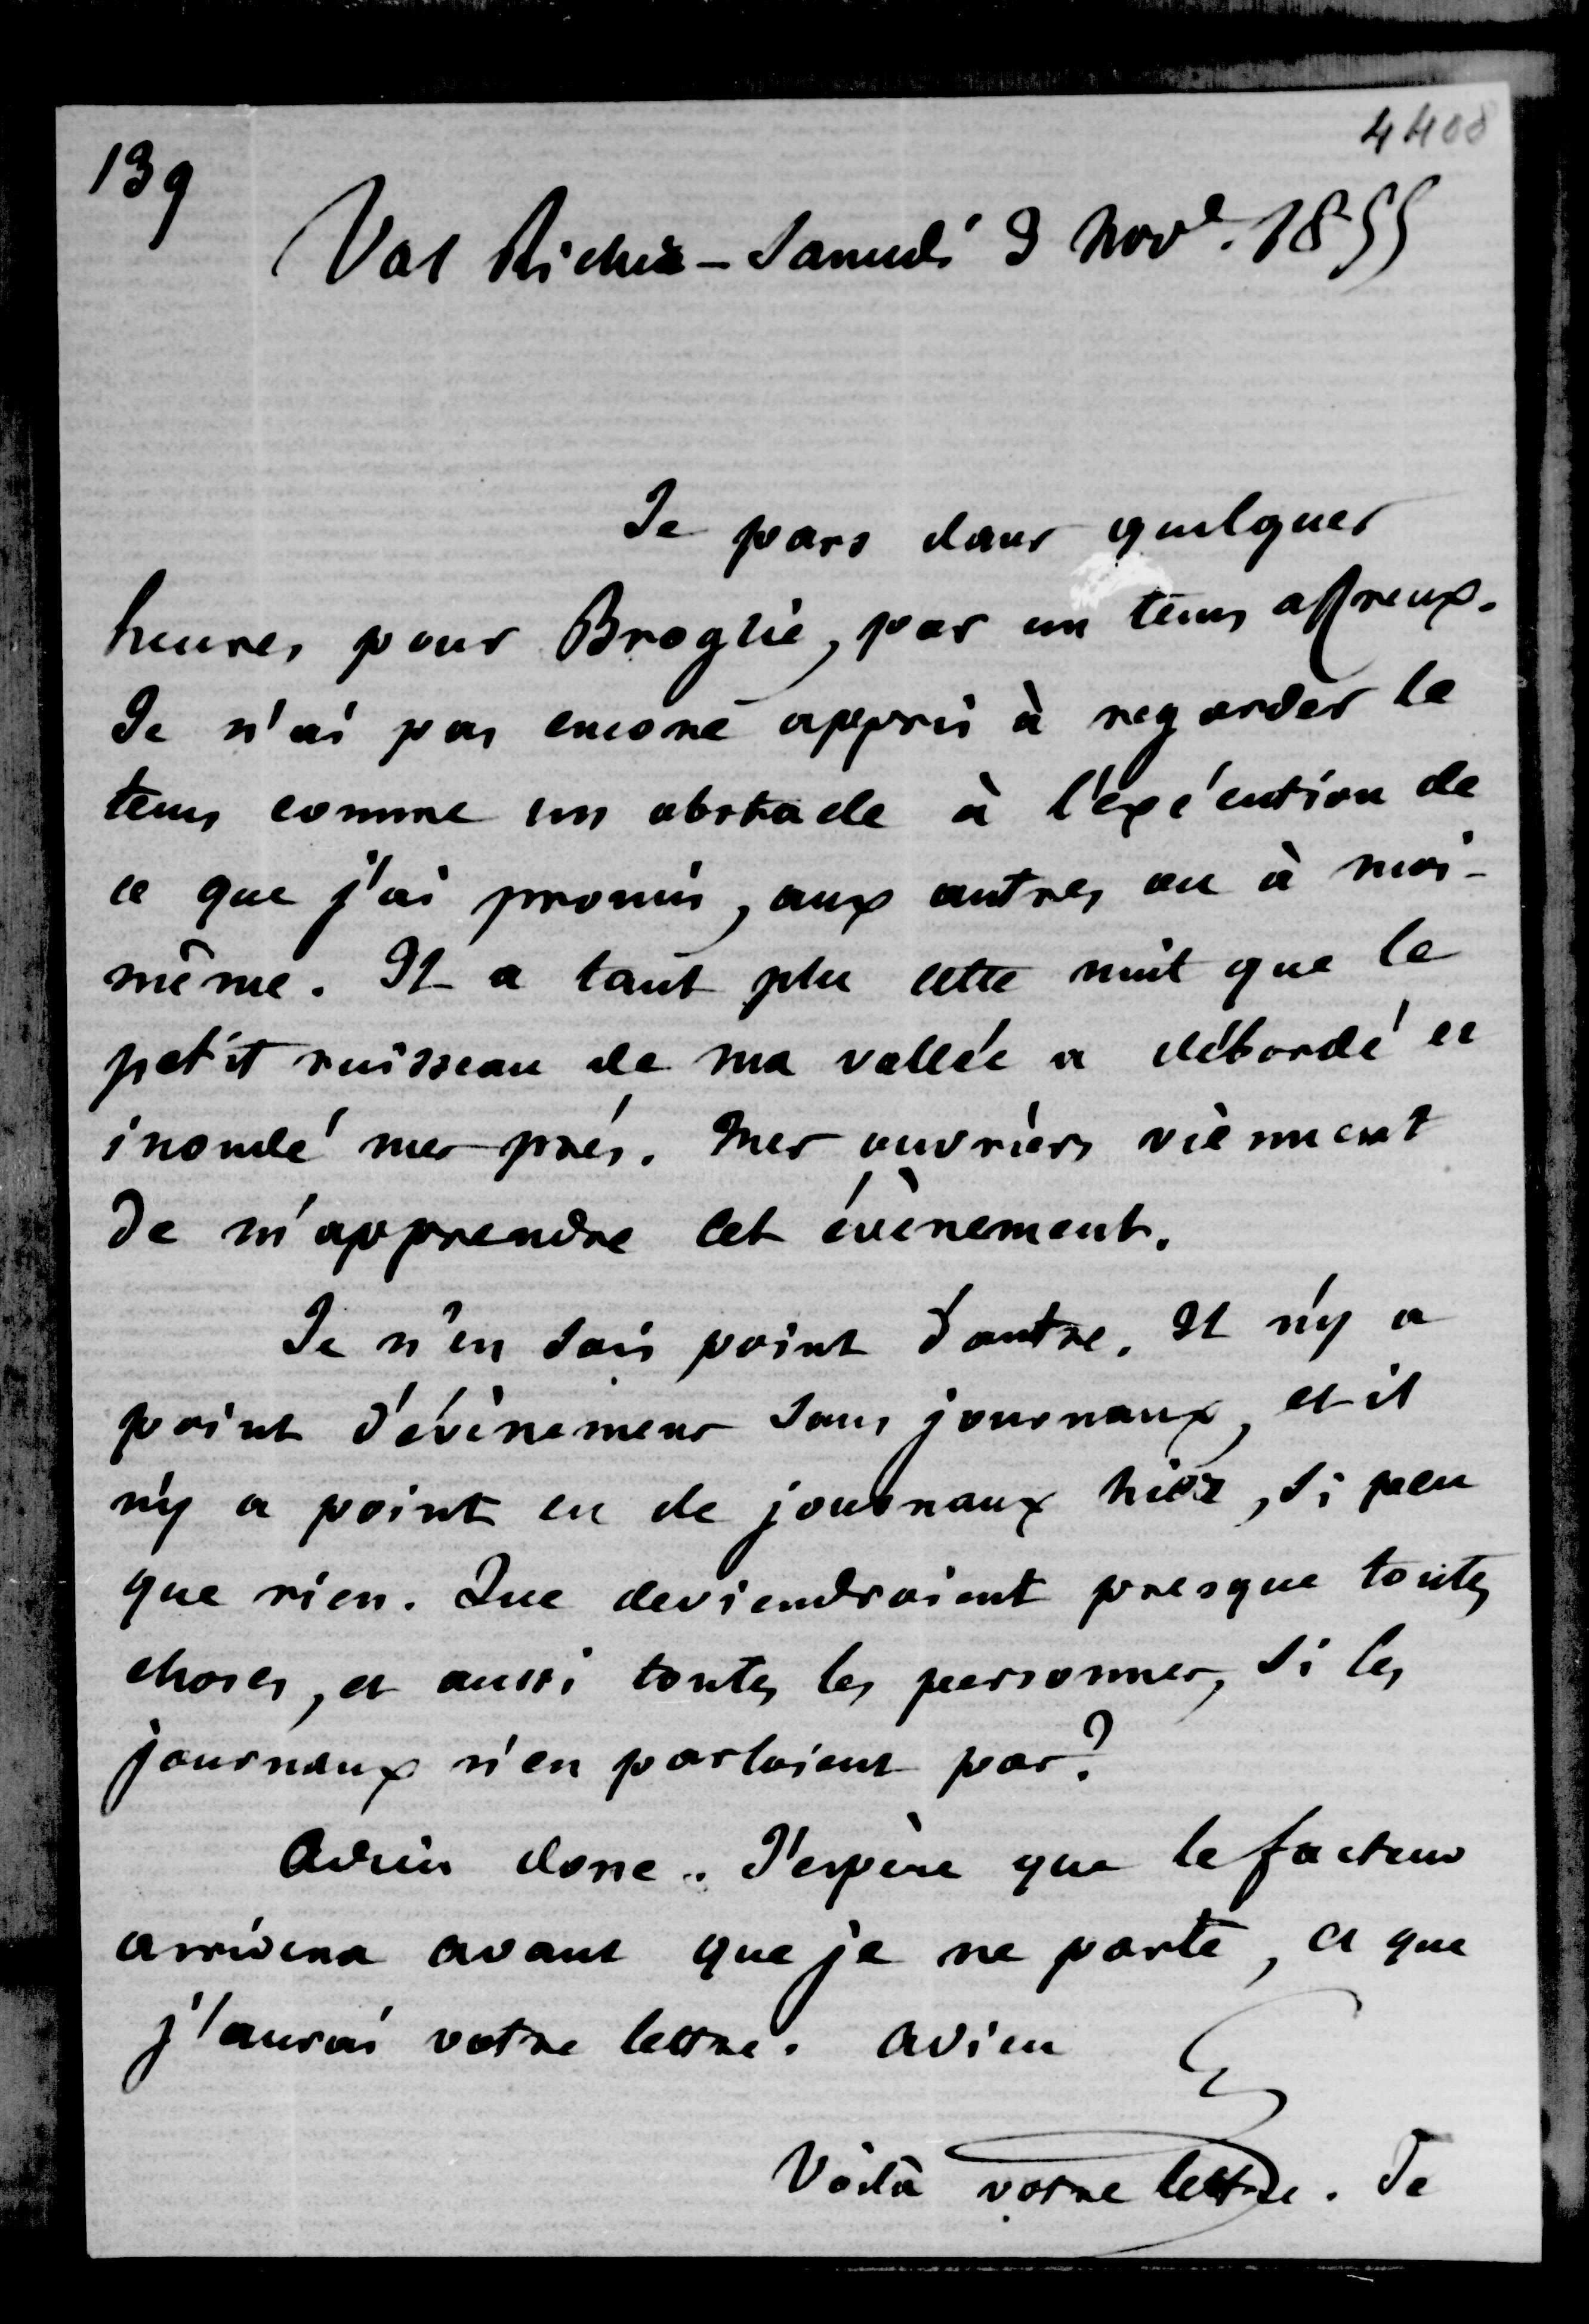 4408
139
Val Richer - Samedi 3 Nov.e 1855
Je pars dans quelques
heures pour Broglie, par un tems affreux.
Je n'ai pas encore appris à regarder le
tems comme un obstacle à l'exécution de
ce que j'ai promis, aux autres ou à moi-
même. Il a tant plu cette nuit que le
petit ruisseau de ma vallée a débordé et
inondé mes prés. Mes ouvriers viennent
de m'apprendre cet évènement.
Je n'en sais point d'autre. Il n'y a
point d'évènemens sans journaux, et il
n'y a point eu de journaux hier, si peu
que rien. Que deviendroient presque toutes
choses, et aussi toutes les personnes, si les
journaux n'en parloient pas?
Adieu donc. J'espère que le facteur
arrivera avant que je ne parte, et que
j'aurai votre lettre. Adieu
Voilà votre lettre. Je